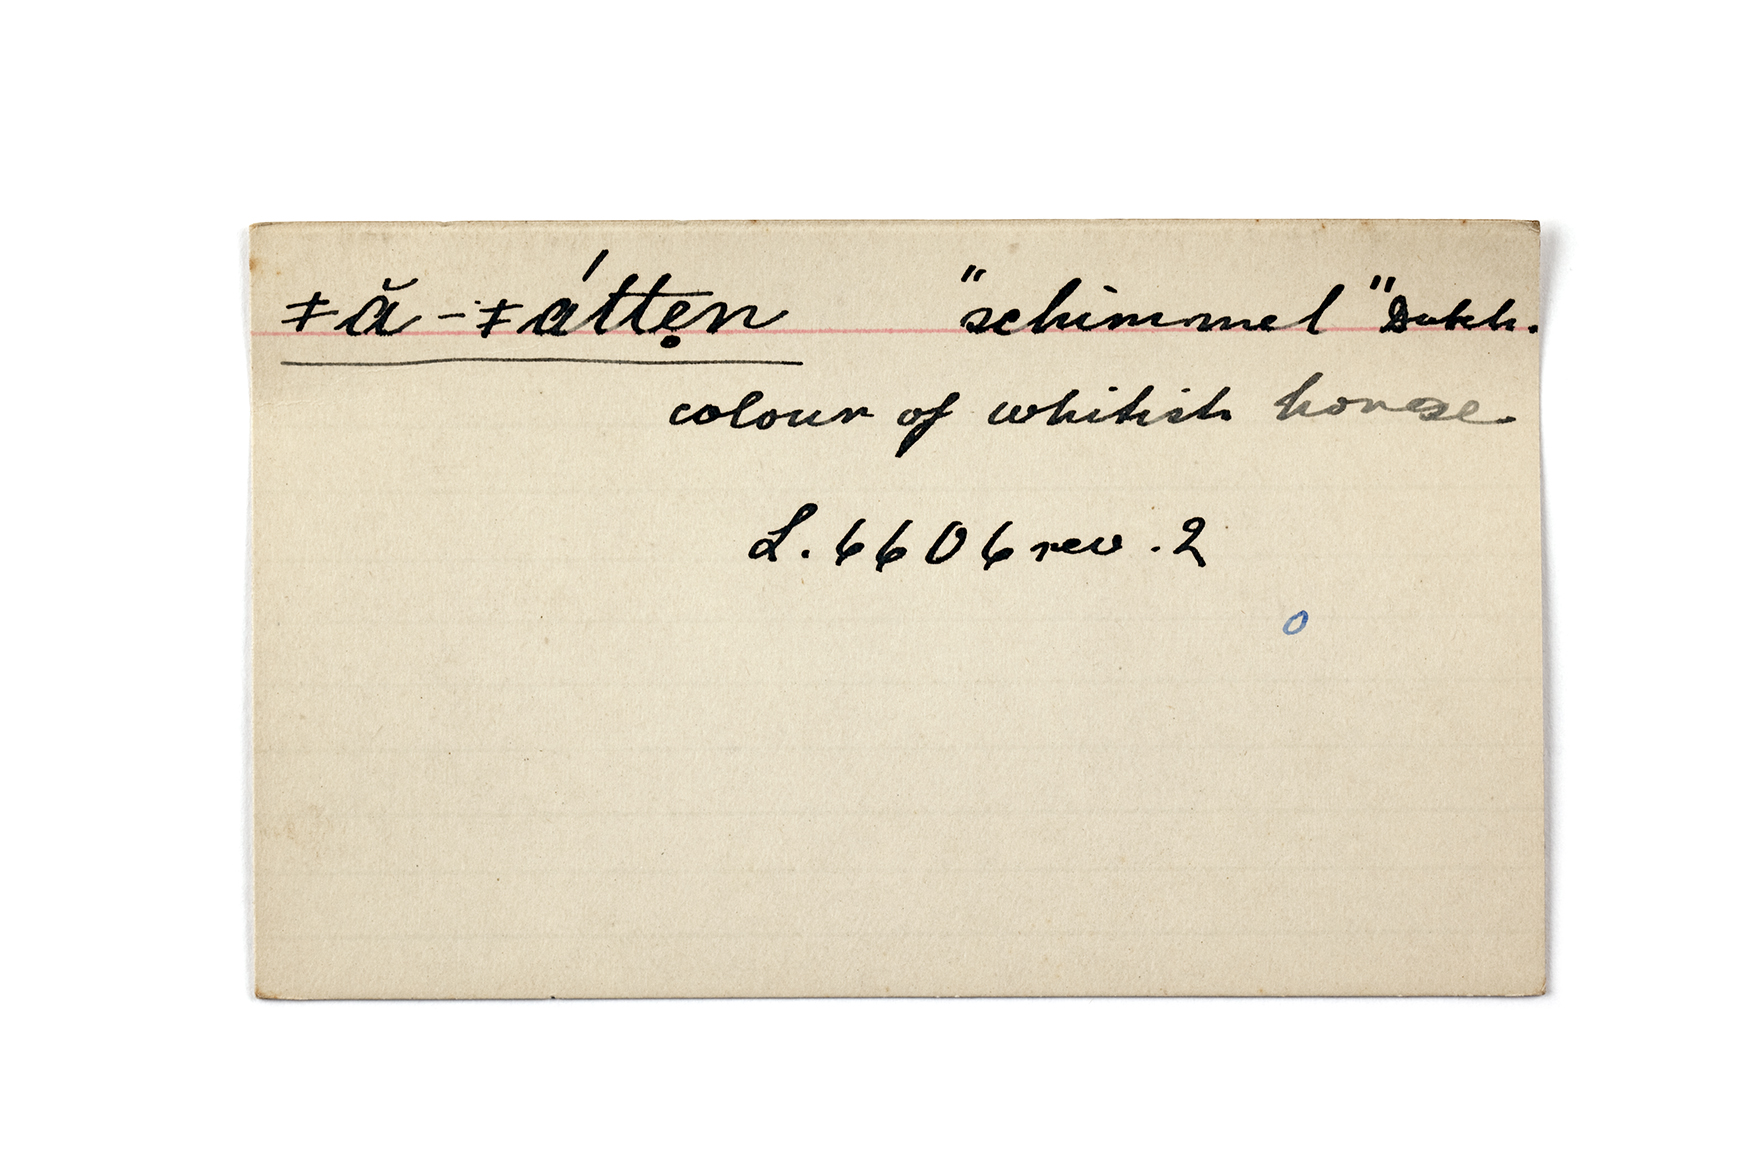 ǂă-ǂáttẹn "schimmel" Dutch.
colour of whitish horse
L. 6606 rev. 2
o